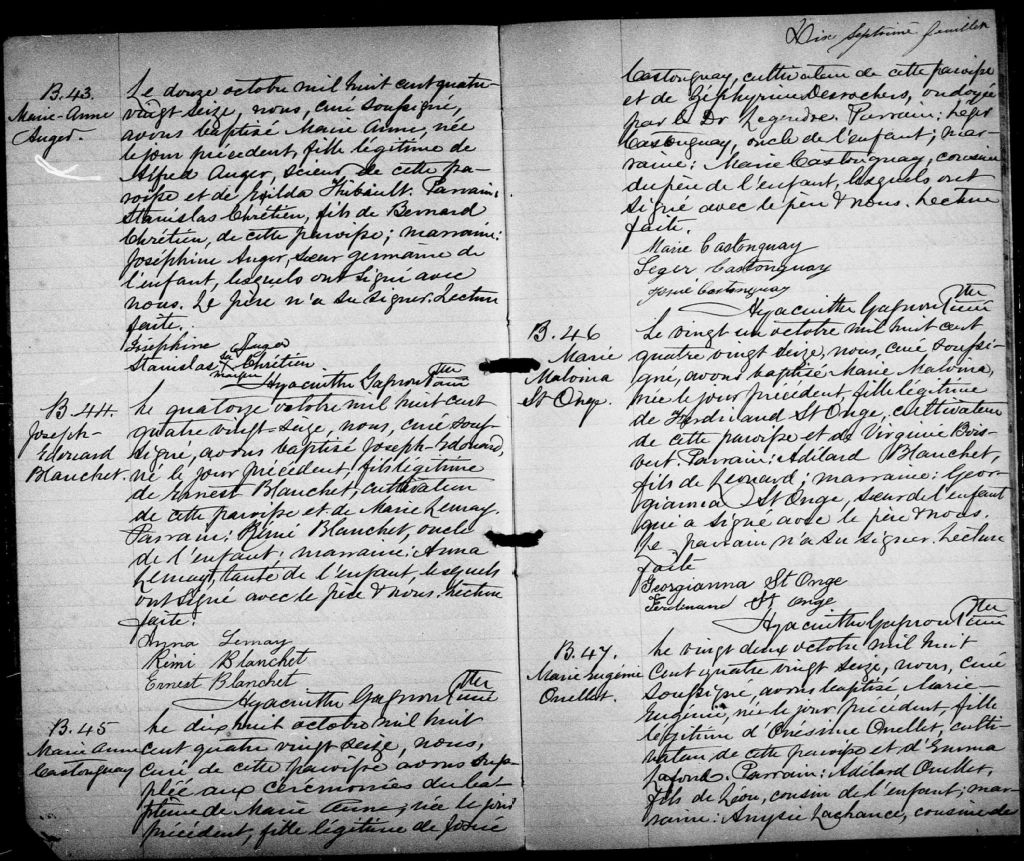 B.43.
Marie-Anne
Auger.
Le douze octobre mil huit cent quatre-
vingt seize, nous, curé soussigné,
avons baptisé Marie Anne, née
le jour précédent, fille légitime de
Alfred Auger, scieur de cette pa-
roisse et de Exilda Thibault. Parrain:
Stanislas Chrétien, fils de Bernard
Chrétien, de cette paroisse; marraine:
Joséphine Auger, sœur germaine de
l'enfant, lesquels ont signé avec
nous. Le père n'a su signer. Lecture
faite.
Joséphine Auger
Stanislas sa X marque Chrétien
Hyacinthe Gagnon Ptre
curé
B.44.
Joseph-
Edouard
Blanchet.
Le quatorze octobre mil huit cent
quatre vingt-seize, nous, curé sous-
signé, avons baptisé Joseph-Edouard,
né le jour précédent, fils légitime
de Ernest Blanchet, cultivateur
de cette paroisse et de Marie Lemay.
Parrain: Rémi Blanchet, oncle
de l'enfant; marraine: Anna
Lemay, tante de l'enfant, lesquels
ont signé avec le père & nous. Lecture
faite.
Anna Lemay
Rémi Blanchet
Ernest Blanchet
Hyacinthe Gagnon Ptre
curé
B.45
Marie Anne
Castonguay
Le dix huit octobre mil huit
cent quatre vingt seize, nous,
curé de cette paroisse avons sup-
pléé aux cérémonies du bap-
tême de Marie Anne, née le jour
précédent, fille légitime de José
Dix septième feuillet
Castonguay, cultivateur de cette paroisse
et de Zéphyrine Desrochers, ondoyée
par le Dr Legendre. Parrain: Léger
Castonguay, oncle de l'enfant; mar-
raine: Marie Castonguay, cousine
du père de l'enfant, lesquels ont
signé avec le père & nous. Lecture
faite.
Marie Castonguay
Leger Castonguay
José Castonguay
Hyacinthe Gagnon Ptre
curé
B.46
Marie
Malvina
St Onge.
Le vingt un octobre mil huit cent
quatre vingt seize, nous, curé soussi-
gné, avons baptisé Marie Malvina,
née le jour précédent, fille légitime
de Ferdinand St Onge, cultivateur
de cette paroisse et de Virginie Bois-
vert. Parrain: Adélard Blanchet,
fils de Léonard; marraine: Geor-
gianna St Onge, sœur de l'enfant
qui a signé avec le père & nous.
Le parrain n'a su signer. Lecture
faite
Georgianna St Onge
Ferdinand St Onge
Hyacinthe Gagnon Ptre
curé
B.47.
Marie Eugénie
Ouellet.
Le vingt deux octobre mil huit
cent quatre vingt seize, nous, curé
soussigné, avons baptisé Marie
Eugénie, née le jour précédent, fille
légitime d'Onésime Ouellet, culti-
vateur de cette paroisse et d'Emma
Lafond. Parrain: Adélard Ouellet,
fils de Léon, cousin de l'enfant; mar-
raine: Amysie Lachance, cousine de